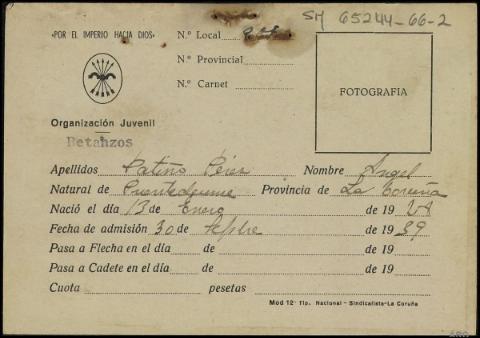 SM 65244-66-2
«POR EL IMPERIO HACIA DIOS»
N.º Local
N.º Provincial
N.º Carnet
FOTOGRAFIA
Organización Juvenil
Betanzos
Apellidos Patiño Pérez Nombre Angel
Natural de Puentedeume Provincia de La Coruña
Nació el día 13 de Enero de 19 24
Fecha de admisión 30 de Sepbre de 19 39
Pasa a Flecha en el día de de 19
Pasa a Cadete en el día de de 19
Cuota pesetas
Mod 12- Tip. Nacional - Sindicalista-La Coruña